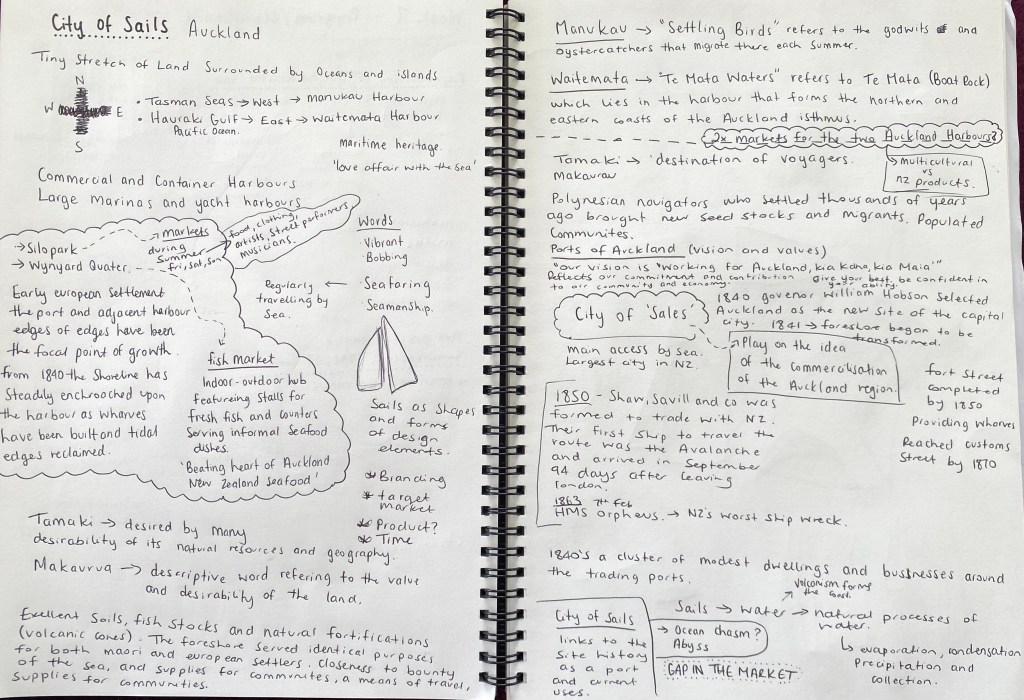 City of Sails Auckland
Tiny Stretch of Land Surrounded by Oceans and islands
N
W E
S
• Tasman Seas → West → Manukau Harbour
• Hauraki Gulf → East → Waitemata Harbour
Pacific Ocean.
maritime heritage.
'love affair with the sea'
Commercial and Container Harbours
Large Marinas and yacht harbours
→ Silo park
→ Wynyard Quater.
markets
during
Summer
fri, sat, sun
food, clothing,
artists, street performers
musicians.
Words
· Vibrant
· Bobbing
· Seafaring
· Seamanship.
Regularly
travelling by
Sea.
Early european settlement
the port and adjacent harbour
edges of edges have been
the focal point of growth.
from 1840 the shoreline has
Steadily enchroached upon
the harbour as wharves
have been built and tidal
edges reclaimed.
fish market
Indoor-outdoor hub
featureing stalls for
fresh fish and counters
Serving informal seafood
dishes.
'Beating heart of Auckland
New Zealand seafood'
Sails as shapes
and forms
of design
elements.
* Branding
* target
market
* Product?
* Time
Tamaki → desired by many
desirability of its natural resources and geography.
Makaurua → descriptive word refering to the value
and desirability of the land.
Exellent Soils, fish stocks and natural fortifications
(volcanic cones). The foreshore served identical purposes
for both maori and european settlers. closeness to bounty
of the sea, and supplies for communites, a means of travel,
supplies for communities.
Manukau → "Settling Birds" refers to the godwits and
oystercatchers that migrate there each summer.
Waitemata → 'Te Mata Waters" refers to Te Mata (Boat Rock)
which lies in the harbour that forms the northern and
eastern coasts of the Auckland isthmus.
2x markets for the two Auckland Harbours?
↳ multicultural
vs
nz products.
Tamaki → 'destination of voyagers.
Makaurau
Polynesian navigators who settled thousands of years
ago brought new seed stocks and migrants. Populated
Communites.
Ports of Auckland (vision and values)
"our vision is 'Working for Auckland, kia kana, kia Maia'"
Reflects our commitment and contribution
to our community and economy.
Give your best, be confident in
your ability.
City of 'Sales'
1840 govenor William Hobson selected
Auckland as the new site of the capital
city. 1841 → foreshore began to be
transformed.
main access by sea.
Largest city in NZ.
→ Play on the idea
of the commercilisation
of the Auckland region.
fort Street
completed
by 1850
Providing wharves
Reached customs
Street by 1870
1850 - Shaw, Savill and co was
formed to trade with NZ.
Their first ship to travel the
route was the Avalanche
and arrived in September
94 days after leaving
london.
1863 7th feb
HMS orpheus. → NZ's worst ship wreck.
1840's a cluster of modest dwellings and businesses around
the trading ports.
City of Sails
links to the
Site history
as a port
and current
uses.
Sails → water → natural processes of
water.
volcanism forms
the coast.
→ Ocean chasm?
Abyss
GAP IN THE MARKET
↳ evaporation, condensation
Precipitation and
collection.